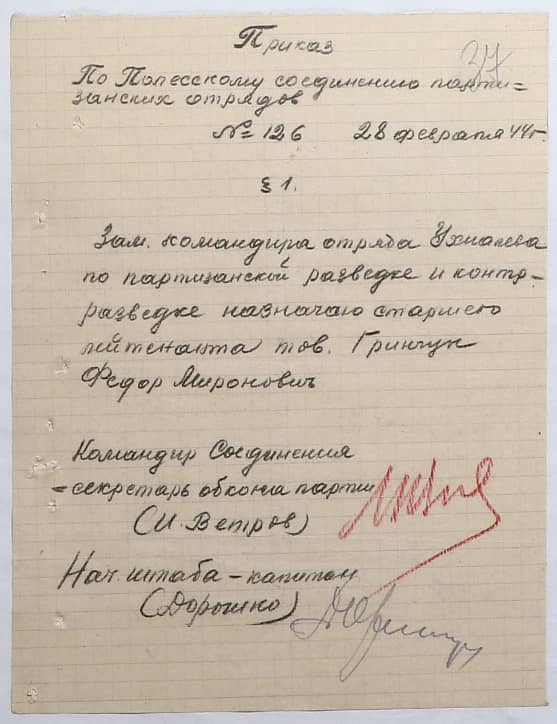 Приказ
27
По Полесскому соединению парти=
занских отрядов
№ 126 28 февраля 44г.
§ 1.
Зам. командира отряда
по партизанской разведке и контр-
разведке назначаю старшего
лейтенанта тов. Гринчук
Федор Миронович
Командир Соединения
-секретарь обкома партии
(И. Ветров)
Нач. штаба – капитан
(Дорошко)